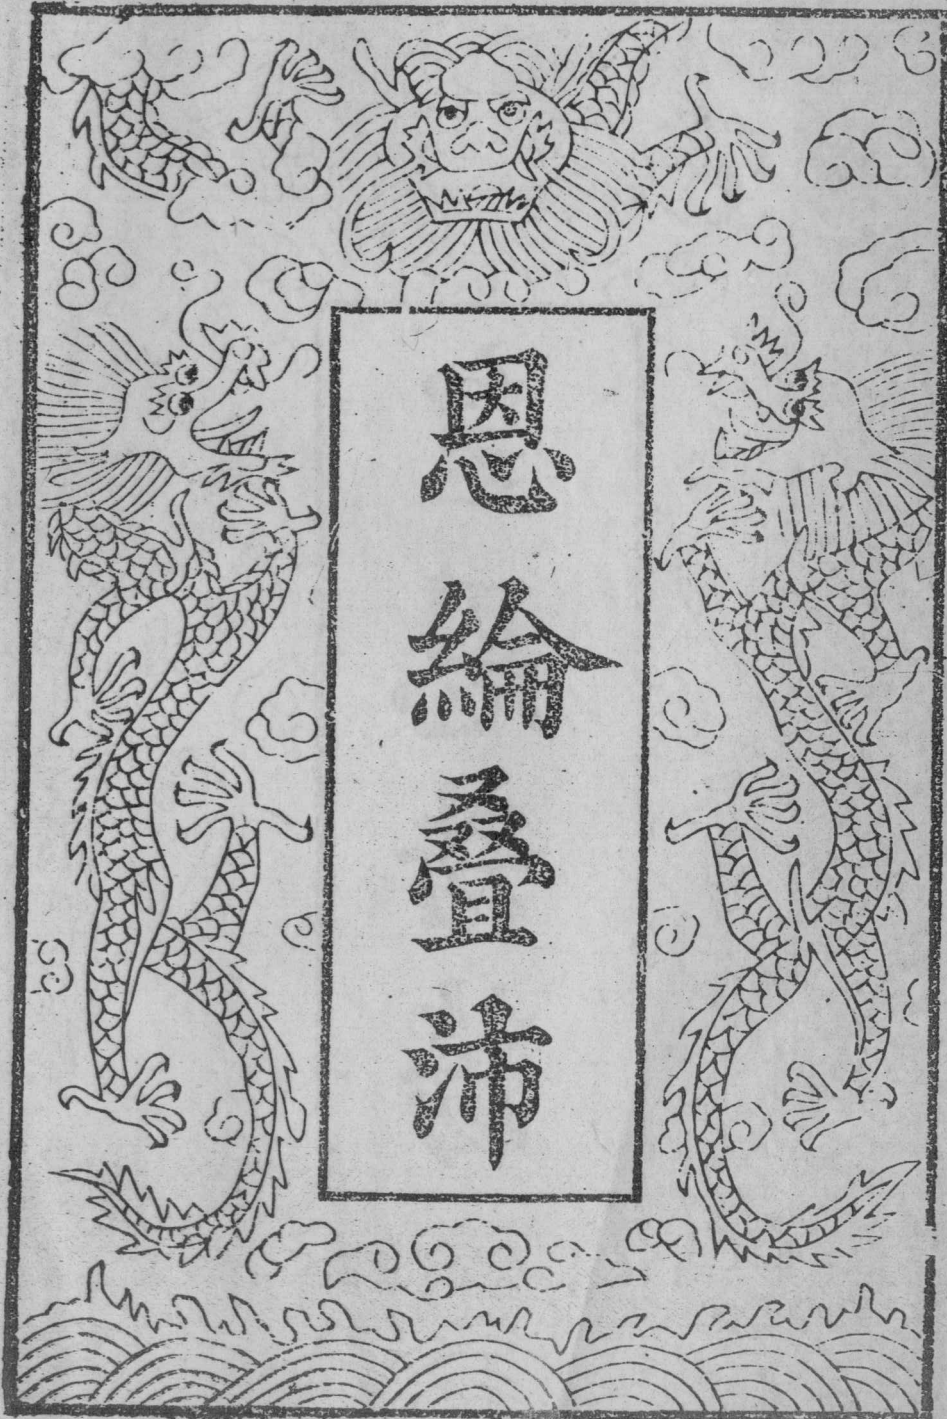 恩綸叠沛